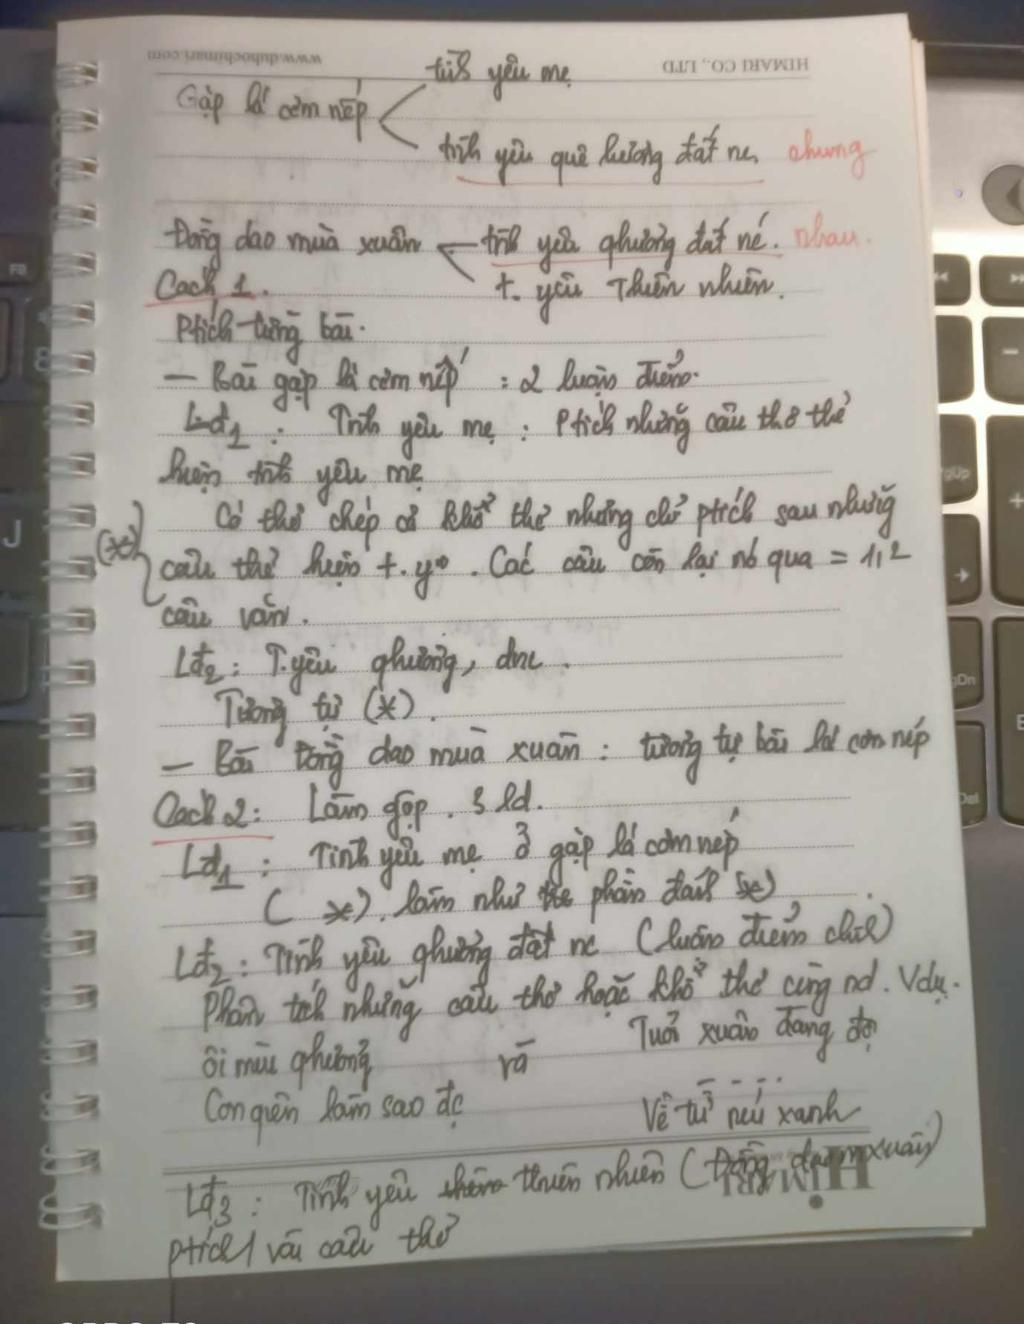 www.duhochimari.com HIMARI CO., LTD
tình yêu mẹ
Gặp lá cơm nếp
tình yêu quê hương đất nc. chung
Đồng dao mùa xuân tình yêu qhương đất nc. nhau.
Cách 1. t. yêu Thiên nhiên.
Ptích từng bài.
— Bài gặp lá cơm nếp : 2 luận điểm.
Lđ1 : Tình yêu mẹ : Ptích những câu thơ thể
hiện tình yêu mẹ
Có thể chép cả khổ thơ nhưng chỉ ptích sau những
(*) câu thể hiện t.y. Các câu còn lại nó qua = 1, 2
câu văn.
Lđ2 : T.yêu qhương, đnc.
Tương tự (*).
— Bài Đồng dao mùa xuân : tương tự bài lá cơm nếp
Cách 2: Làm gộp. 3 lđ.
Lđ1 : Tình yêu mẹ ở gặp lá cơm nếp
( *). làm như phần đánh (*)
Lđ2 : Tình yêu qhương đất nc (luận điểm chính)
Phân tích những câu thơ hoặc khổ thơ cùng nd. Vdụ.
ôi mùi qhương và Tuổi xuân đang độ
Con quên làm sao đc
Về từ núi xanh
HIMARI
Lđ3 : Tình yêu thiên nhiên (Đồng dao mxuân)
ptích 1 vài câu thơ